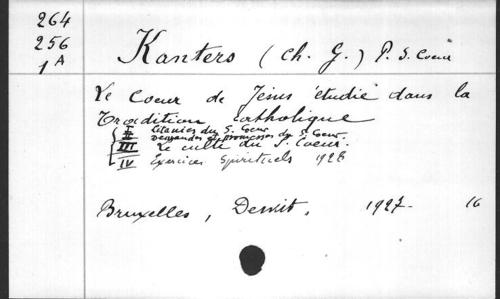 264
256
1 A
Kanters (Ch. G.) P. S. Coeur
Le Coeur de Jésus étudié dans la
Tradition catholique
II Litanies du S. Coeur
Demandes et promesses du S. Coeur.
III Le culte du S. Coeur.
IV Exercices Spirituels 1928
Bruxelles, Dewit, 1927 - 16